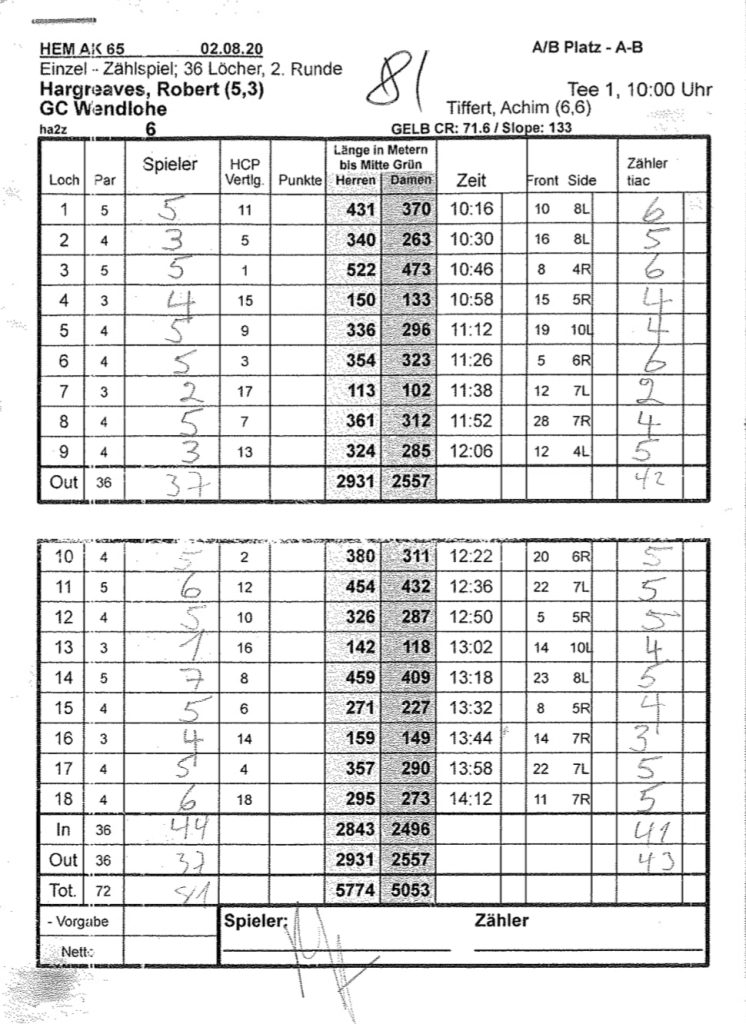 HEM AK 65 02.08.20 A/B Platz - A-B
Einzel - Zählspiel; 36 Löcher, 2. Runde 81
Hargreaves, Robert (5,3) Tee 1, 10:00 Uhr
GC Wendlohe Tiffert, Achim (6,6)
ha2z 6 GELB CR: 71.6 / Slope: 133
Länge in Metern
bis Mitte Grün
Loch Par Spieler HCP Vertlg. Punkte Herren Damen Zeit Front Side Zähler tiac
1 5 5 11 431 370 10:16 10 8L 6
2 4 3 5 340 263 10:30 16 8L 5
3 5 5 1 522 473 10:46 8 4R 6
4 3 4 15 150 133 10:58 15 5R 4
5 4 5 9 336 296 11:12 19 10L 4
6 4 5 3 354 323 11:26 5 6R 6
7 3 2 17 113 102 11:38 12 7L 2
8 4 5 7 361 312 11:52 28 7R 4
9 4 3 13 324 285 12:06 12 4L 5
Out 36 37 2931 2557 42
10 4 5 2 380 311 12:22 20 6R 5
11 5 6 12 454 432 12:36 22 7L 5
12 4 5 10 326 287 12:50 5 5R 5
13 3 1 16 142 118 13:02 14 10L 4
14 5 7 8 459 409 13:18 23 8L 5
15 4 5 6 271 227 13:32 8 5R 4
16 3 4 14 159 149 13:44 14 7R 3
17 4 5 4 357 290 13:58 22 7L 5
18 4 6 18 295 273 14:12 11 7R 5
In 36 44 2843 2496 41
Out 36 37 2931 2557 43
Tot. 72 81 5774 5053
- Vorgabe Spieler: Zähler
Netto